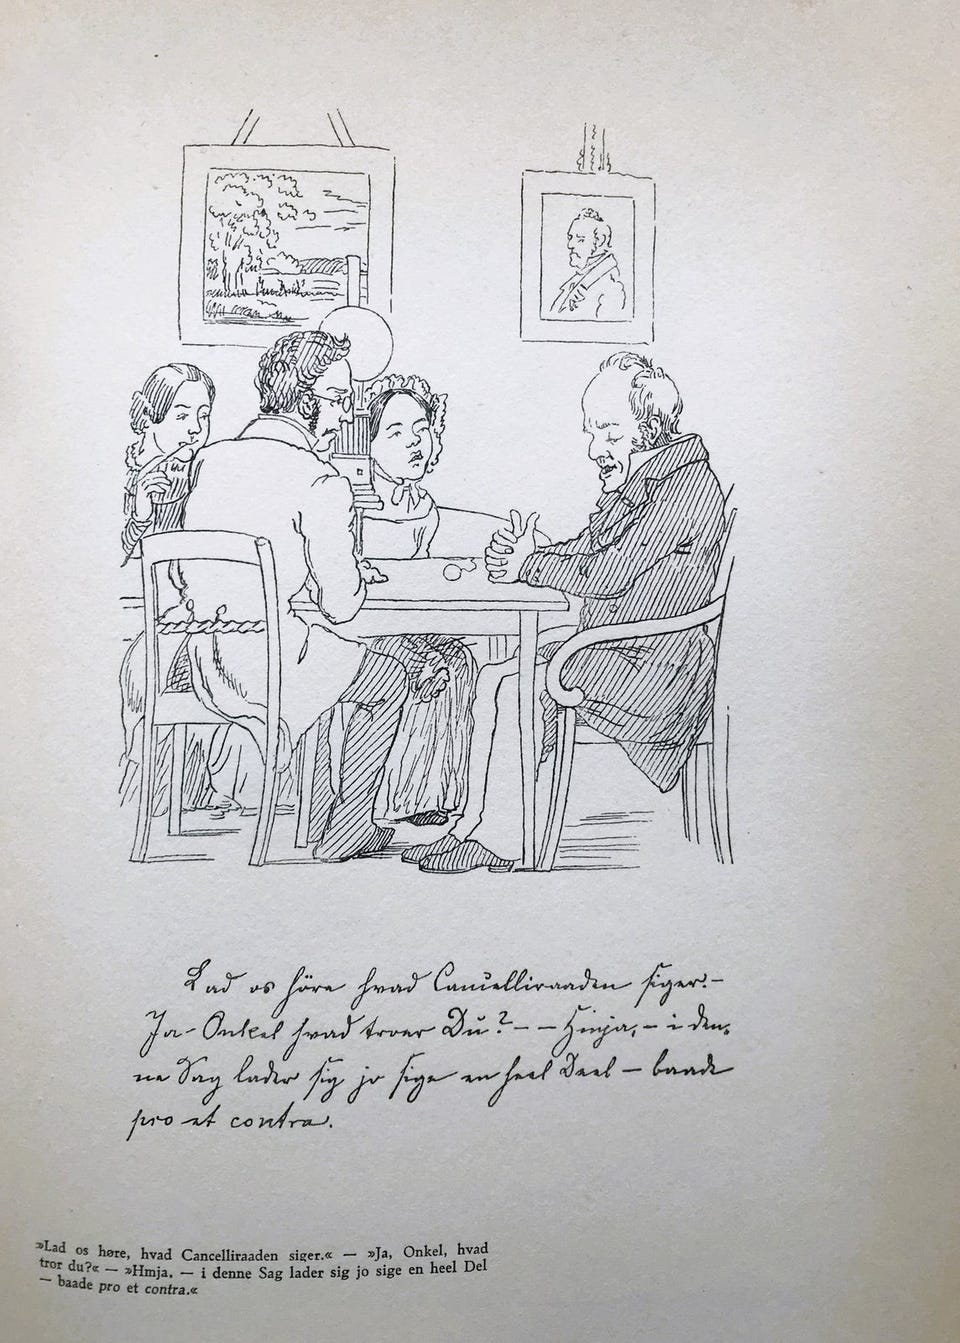 Lad os höre hvad Cancelliraaden siger.–
Ja- Onkel hvad troer Du? – – Hmja, – i den-
ne Sag lader sig jo sige en heel Deel – baade
pro et contra.
»Lad os høre, hvad Cancelliraaden siger.« — »Ja, Onkel, hvad
tror du?« — »Hmja, — i denne Sag lader sig jo sige en heel Del
— baade pro et contra.«